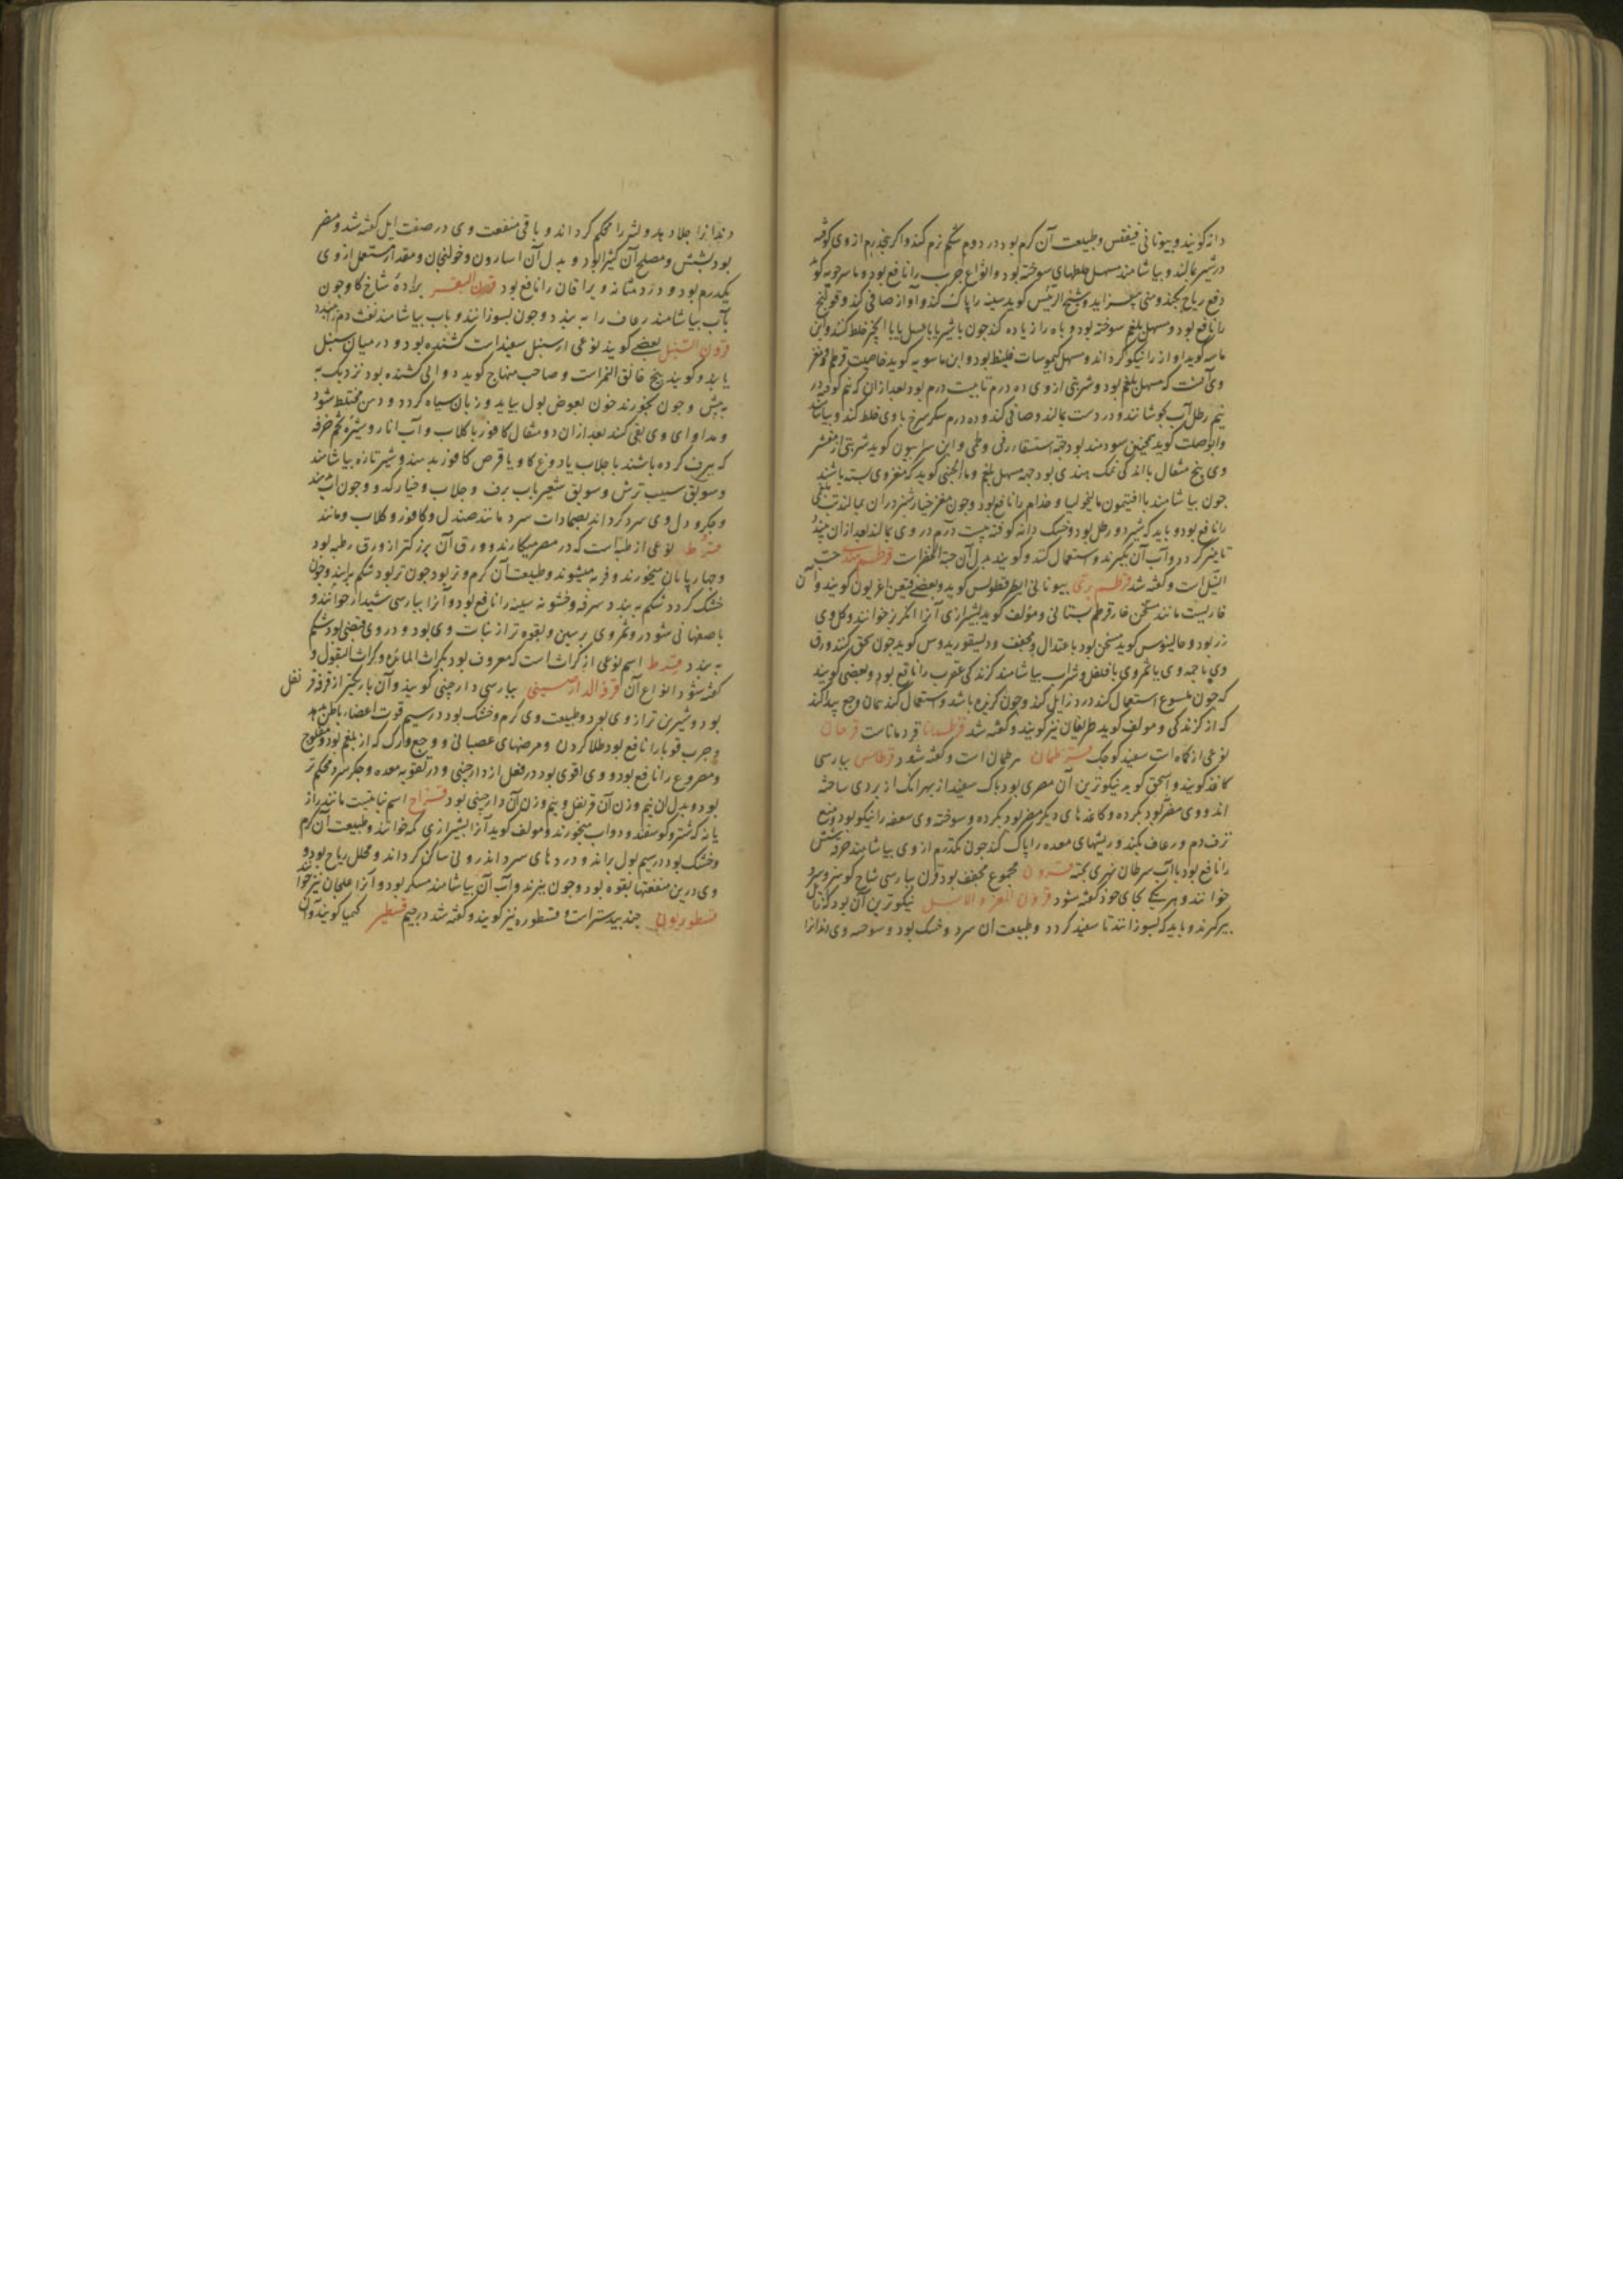 دانه کویند و بیونانی فیفقس و طبیعت آن کرم بود در دوم شکم نرم کند و اکر پنجدرم از وی کوفته
در شیر بمالند و بیاشامند مسهل خلطهای سوخته بود و انواع جرب را نافع بود و ماسرجویه کوید
دفع ریاح بکند و منی بیفزاید و شیخ الرئیس کوید سینه را پاک کند و آواز صافی کند و قولنج
را نافع بود و مسهل بلغم سوخته بود و باه را زیاده کند چون با شیر یا با عسل یا با انجیر خلط کنند و ابن
ماسه کوید اواز را نیکو کرداند و مسهل کیموسات غلیظ بود و ابن ماسویه کوید خاصیت قرطم و مغز
وی آنست که مسهل بلغم بود و شربتی از وی ده درم تا بیست درم بود بعد ازان که نیم کوفته در
نیم رطل آب بجوشانند و در دست بمالند و صافی کند و ده درم سکر سرخ با وی خلط کند و بیاشامد
وابوصلت کوید همچنین سودمند بود جهة استسقاء زقی و طبلی و ابن سرابیون کوید شربتی از مقشر
وی پنج مثقال با اندکی نمک هندی بود جهة مسهل بلغم و ماء الجبنی کوید که مغز وی بسته باشند
چون بیاشامند با افتیمون مالیخولیا و جذام را نافع بود و چون مغز خیارشنبر دران بمالند تب بلغمی
را نافع بود و باید که شیر دو رطل بود و خسک دانه کوفته بیست درم در وی بمالند بعد ازان بنهند
تا پنیر کردد و آب آن بکیرند و استعمال کنند و کویند بدل آن حبة الخضراست قرطم هندی حب
النیل است و کفته شد قرطم بری بیونانی اطرقطولس کوید و بعضی قنیقن اغریون کویند و آن
خاریست مانند قرطم بستانی و مؤلف کوید بشیرازی آنرا انکریز خوانند و کل وی
زرد بود و جالینوس کوید مسخن بود باعتدال و مجفف و دیسقوریدوس کوید چون سحق کنند ورق
وی یا جمه وی یا ثمر وی با فلفل و شراب بیاشامند کزندکی عقرب را نافع بود و بعضی کویند
که چون ملسوع استعمال کند درد زایل کند و چون کزیده باشد و استعمال کند همان وجع پیدا کند
که از کزندکی و مولف کوید طریفان نیز کویند و کفته شد قرطمانا قردماناست قرحان
نوعی از کماه است سفید کوچک قرطمان هرطمان است و کفته شود قرطاس بپارسی
کاغذ کویند و اسحق کوید نیکوترین آن مصری بود پاک سفید از بهر آنک از بردی ساخته
اند و وی مضر بود بکرده و کاغذهای دیکر مضر بود بکرده و سوخته وی سعفه را نیکو بود و منع
نزف دم و رعاف بکند و ریشهای معده را پاک کند چون یکدرم از وی بیاشامند حرقه شش
را نافع بود با آب سرطان نهری پخته قرون مجموع مجفف بود قرن بپارسی شاخ کوسفند و سرو
خوانند و هر یکی بجای خود کفته شود قرون المعز و الایل نیکوترین آن بود که از ایل
پیر کیرند و باید که بسوزانند تا سفید کردد و طبیعت ان سرد و خشک بود و سوخته وی دندانرا
دندانرا جلا دهد و لثه را محکم کرداند و باقی منفعت وی در صفت ایل کفته شد و مضر
بود بشش و مصلح آن کثیرا بود و بدل آن اسارون و خولنجان و مقدار مستعمل از وی
یکدرم بود و درد مثانه و یرقان را نافع بود قرن البقر برادۀ شاخ کاو چون
بآب بیاشامند رعاف را ببندد و چون بسوزانند و باب بیاشامند نفث دم را ببندد
قرون السنبل بعضی کویند نوعی از سنبل سفید است کشنده بود و در میان سنبل
یابند و کویند بیخ خانق النمر است و صاحب منهاج کوید دوایی کشنده بود نزدیک به
به بیش و چون بخورند خون بعوض بول بیاید و زبان سیاه کردد و ذهن مختلط شود
و مداوای وی بقی کنند بعد ازان دو مثقال کافور با کلاب و آب انار و شیرۀ تخم خرفه
که ببرف کرده باشند با جلاب یا دوغ کاو یا قرص کافور بدهند و شیر تازه بیاشامند
و سویق سیب ترش و سویق شعیر باب برف و جلاب و خیار کدو
و جکر و دل وی سرد کرداند بضمادات سرد مانند صندل و کافور و کلاب و مانند
قرط نوعی از رطبه است که در مصر میکارند و ورق آن بزرکتر از ورق رطبه بود
و چهارپایان میخورند و فربه میشوند و طبیعت آن کرم و تر بود چون تر بود شکم براند و چون
خشک کردد شکم ببندد سرفه و خشونة سینه را نافع بود و آنرا بپارسی شبدار خوانند و
باصفهانی شودر و ثمر وی برسین و بقوه تر از نبات وی بود و در وی قبضی بود شکم
ببندد قرط اسم نوعی از کراث است که معروف بود بکراث المائده و کراث البقول و
کفته شود انواع آن قرفة الدارصینی بپارسی دارچینی کویند و آن باریکتر از قرفه قرنفل
بود و شیرین تر از وی بود و طبیعت وی کرم و خشک بود در سیم قوت اعضاء باطن بدهد
و جرب و قوبا را نافع بود طلا کردن و مرضهای عصبانی و وجع ورک که از بلغم بود و مفلوج
و مصروع را نافع بود و وی اقوی بود در فعل از دارچینی و در تقویه معده و جکر سرد محکم تر
بود و بدل ان نیم وزن آن قرنفل و نیم وزن آن دارچینی بود قزاح اسم نباتیست مانند راز
یانه که شتر و کوسفند و دواب میخورند و مولف کوید آنرا بشیرازی کمه خوانند و طبیعت آن کرم
و خشک بود در سیم بول براند و دردهای سرد اندرونی ساکن کرداند و محلل ریاح بود و
وی درین منفعتها بقوه بود و چون بپزند و آب آن بیاشامند مسکر بود و آنرا علجان نیز خوانند
قسطوریون جندبیدستر است و قسطوره نیز کویند و کفته شد در جیم قسطیر کیمیا کویند و آن